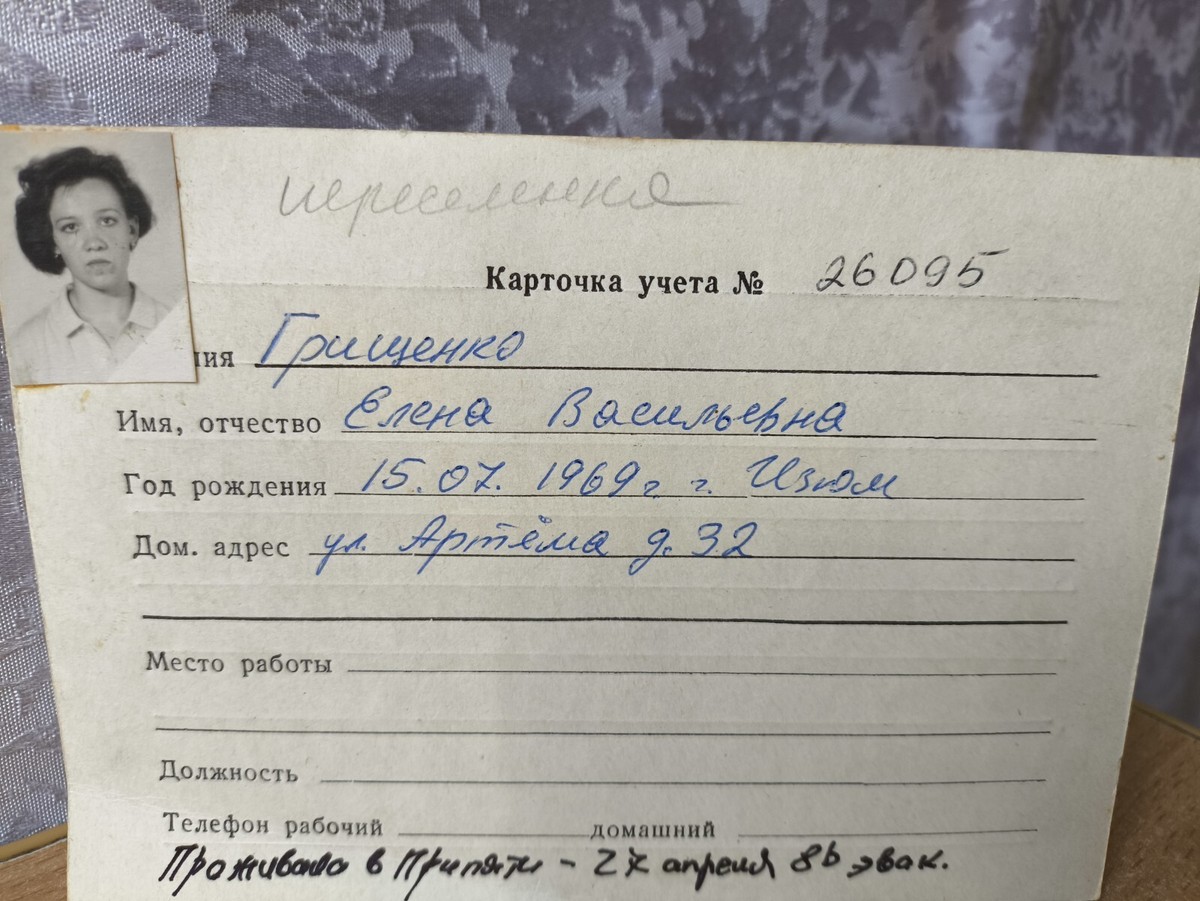 переселенка
Карточка учета № 26095
лия Грищенко
Имя, отчество Елена Васильевна
Год рождения 15.07.1969г г. Изюм
Дом. адрес ул. Артёма д. 32
Место работы
Должность
Телефон рабочий домашний
Проживала в Припяти - 27 апреля 86 эвак.